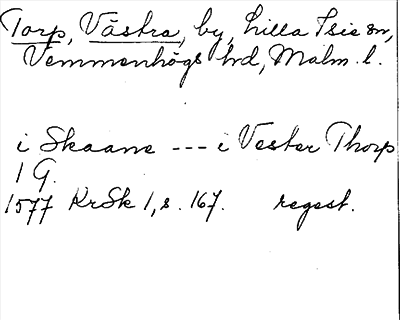 Torp, Västra, by, Lilla Isie sn,
Vemmenhögs hd, Malm. l.
i Skaane --- i Vester Thorp
1 G.
1577 KrSk 1, s. 167. regest.